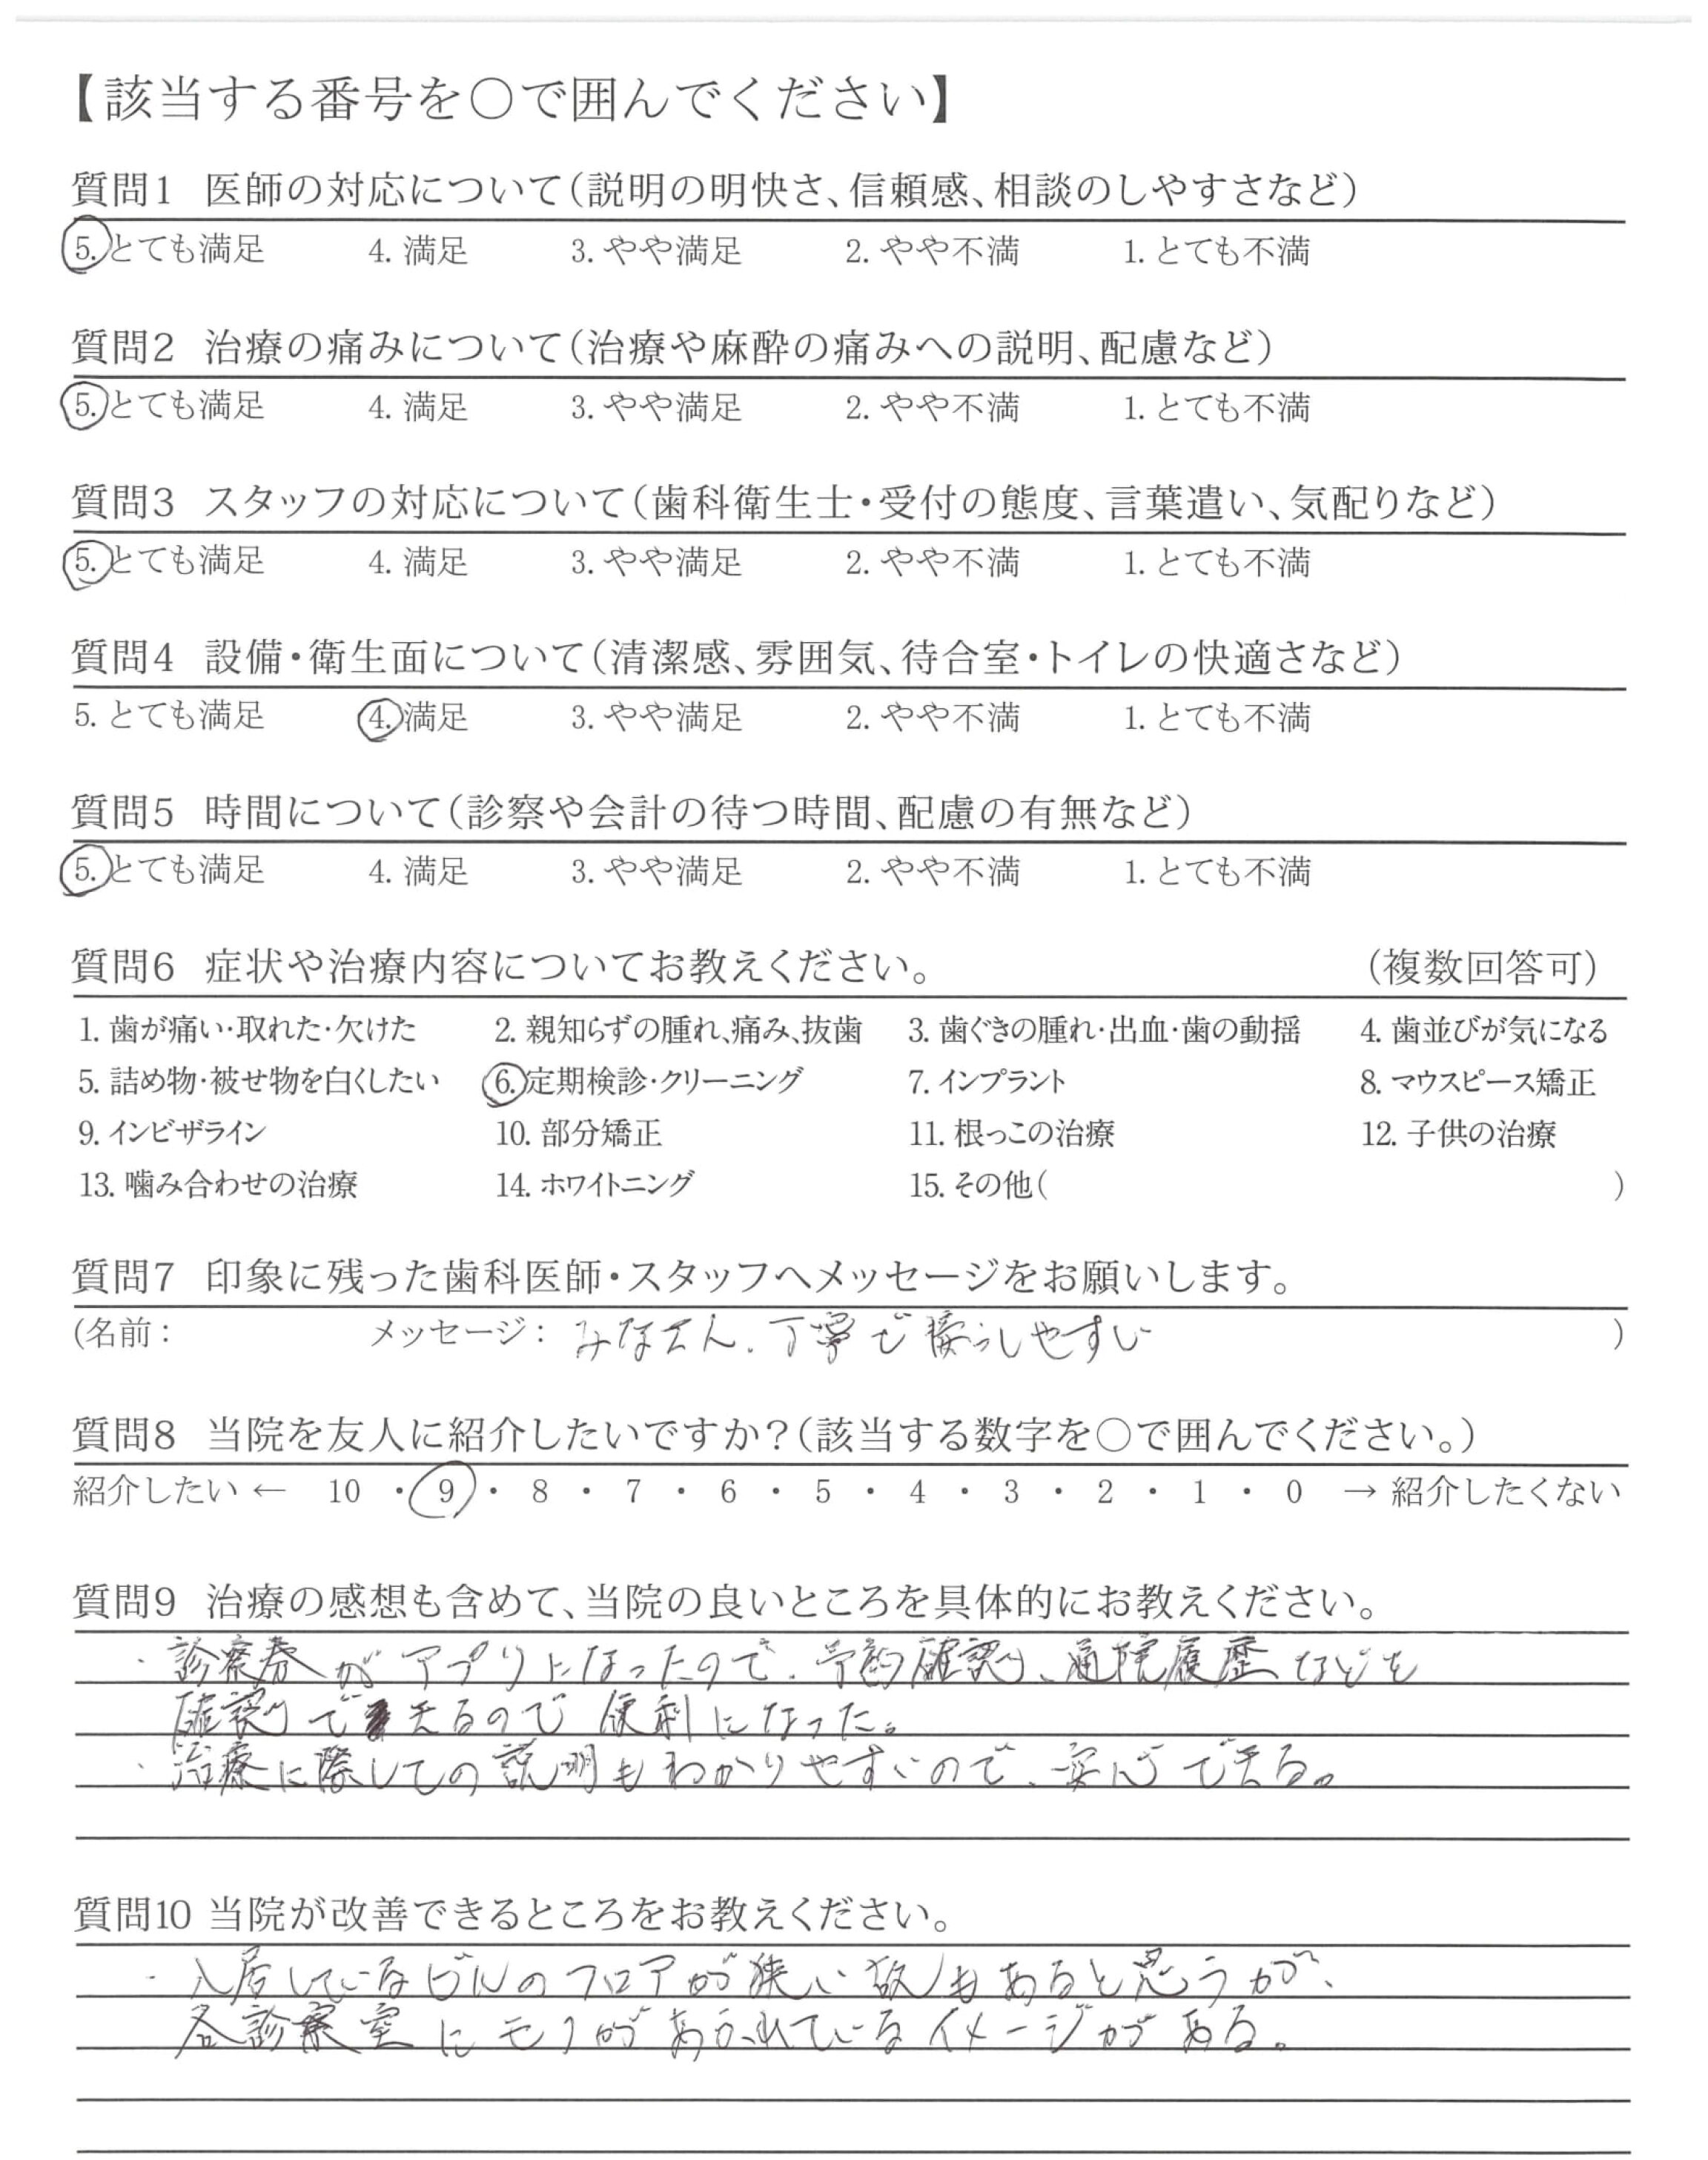 【該当する番号を○で囲んでください】
質問1 医師の対応について(説明の明快さ、信頼感、相談のしやすさなど)
5. とても満足 4. 満足 3. やや満足 2. やや不満 1. とても不満
質問2 治療の痛みについて(治療や麻酔の痛みへの説明、配慮など)
5. とても満足 4. 満足 3. やや満足 2. やや不満 1. とても不満
質問3 スタッフの対応について(歯科衛生士・受付の態度、言葉遣い、気配りなど)
5. とても満足 4. 満足 3. やや満足 2. やや不満 1. とても不満
質問4 設備・衛生面について(清潔感、雰囲気、待合室・トイレの快適さなど)
5. とても満足 4. 満足 3. やや満足 2. やや不満 1. とても不満
質問5 時間について(診察や会計の待つ時間、配慮の有無など)
5. とても満足 4. 満足 3. やや満足 2. やや不満 1. とても不満
質問6 症状や治療内容についてお教えください。 (複数回答可)
1. 歯が痛い・取れた・欠けた 2. 親知らずの腫れ、痛み、抜歯 3. 歯ぐきの腫れ・出血・歯の動揺 4. 歯並びが気になる
5. 詰め物・被せ物を白くしたい 6. 定期検診・クリーニング 7. インプラント 8. マウスピース矯正
9. インビザライン 10. 部分矯正 11. 根っこの治療 12. 子供の治療
13. 噛み合わせの治療 14. ホワイトニング 15. その他( )
質問7 印象に残った歯科医師・スタッフへメッセージをお願いします。
(名前: メッセージ: みなさん、丁寧で しやすい )
質問8 当院を友人に紹介したいですか?(該当する数字を○で囲んでください。)
紹介したい ← 10 ・ 9 ・ 8 ・ 7 ・ 6 ・ 5 ・ 4 ・ 3 ・ 2 ・ 1 ・ 0 → 紹介したくない
質問9 治療の感想も含めて、当院の良いところを具体的にお教えください。
・診察券がアプリになったので、予約確認、通院履歴などを
確認できるので便利になった。
・治療に際しての説明もわかりやすいので、安心できる。
質問10 当院が改善できるところをお教えください。
・入居しているビルのフロアが狭い故もあると思うが、
各診察室にモノがあふれているイメージがある。